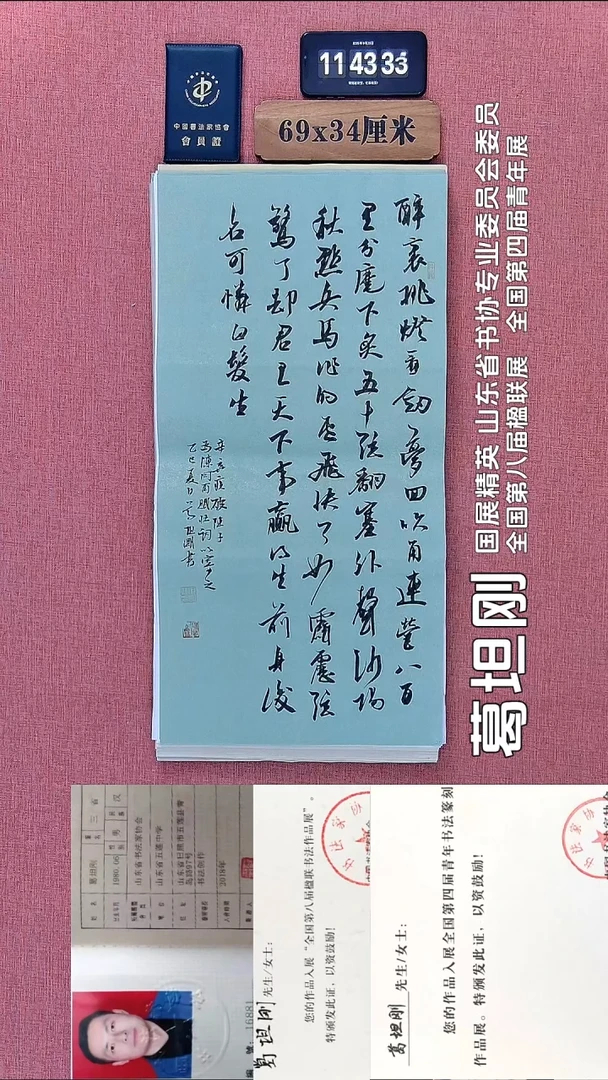 中國書法家協會
會員證
11 43 33
69x34厘米
醉裏挑燈看劔夢回吹角連營八百
里分麾下炙五十弦翻塞外聲沙場
秋點兵馬作的盧飛快弓如霹靂弦
驚了却君王天下事贏得生前身後
名可憐白髮生
辛棄疾破陣子
爲陳同甫賦壯詞以寄之
乙巳夏日葛坦剛書
葛坦刚
国展精英 山东省书协专业委员会委员
全国第八届楹联展 全国第四届青年展
姓名 葛坦刚
山东省书法家协会
山东省五莲中学
书法创作
2018年
16881
葛坦刚 先生/女士：
您的作品入展“全国第八届楹联书法作品展”，
特颁发此证，以资鼓励！
葛坦刚 先生/女士：
您的作品入展全国第四届青年书法篆刻
作品展。特颁发此证，以资鼓励！